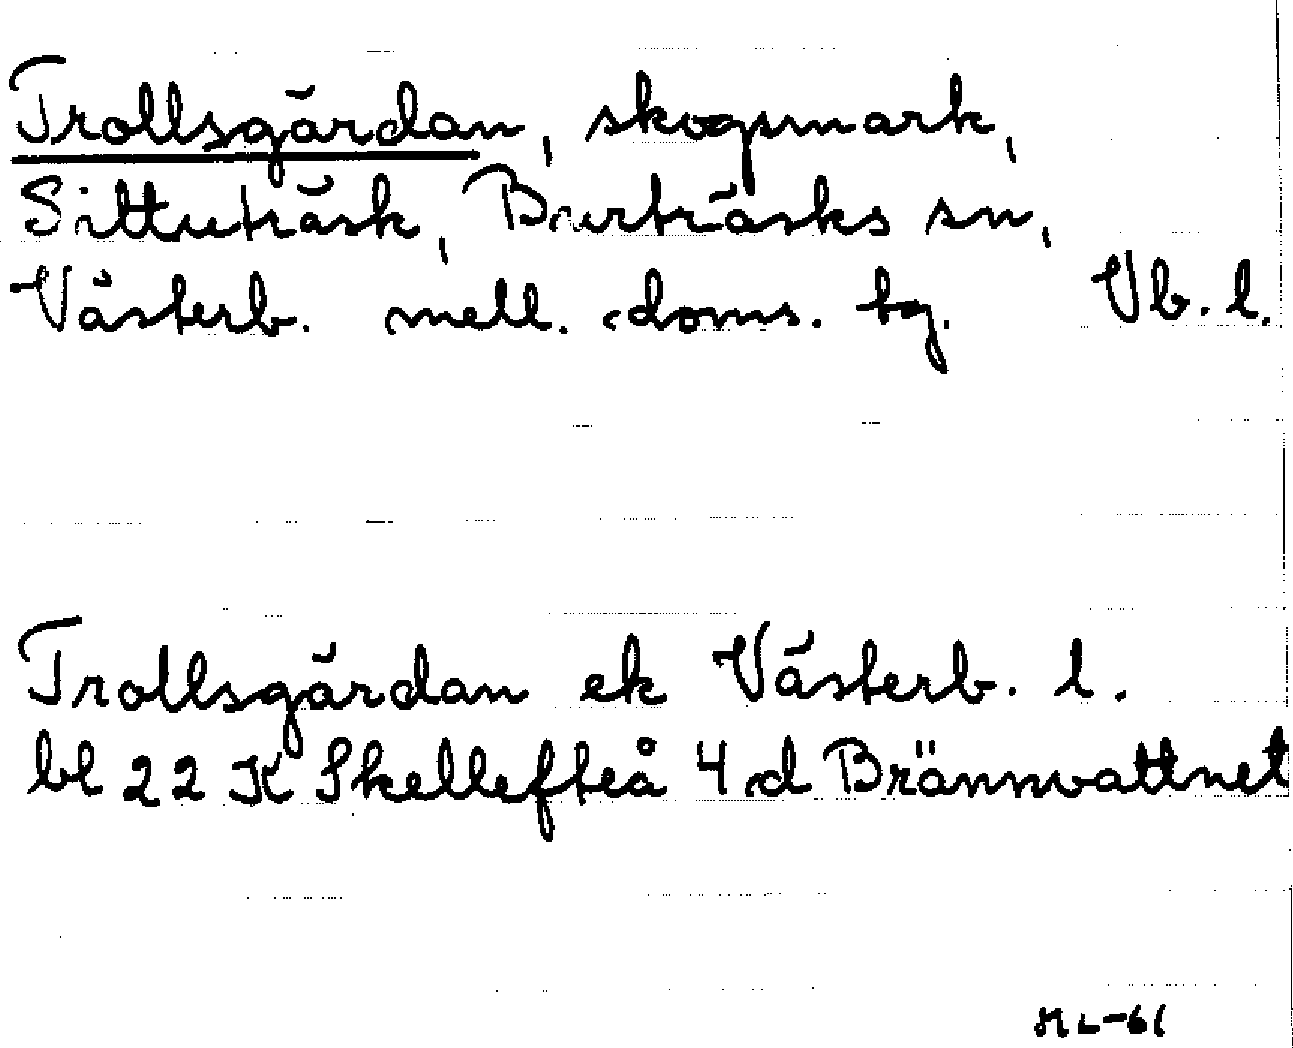 Trollsgärdan, skogsmark,
Sittuträsk, Burträsks sn,
Västerb. mell. doms. tg. Vb. l.
Trollsgärdan ek Västerb. l.
bl 22 K Skellefteå 4 d Brännvattnet
ML-61